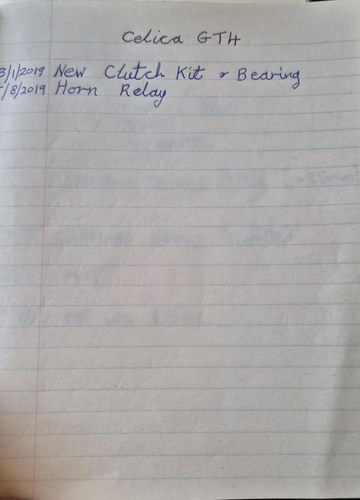 Celica GT4
3/1/2019 New Clutch Kit & Bearing
/8/2019 Horn Relay